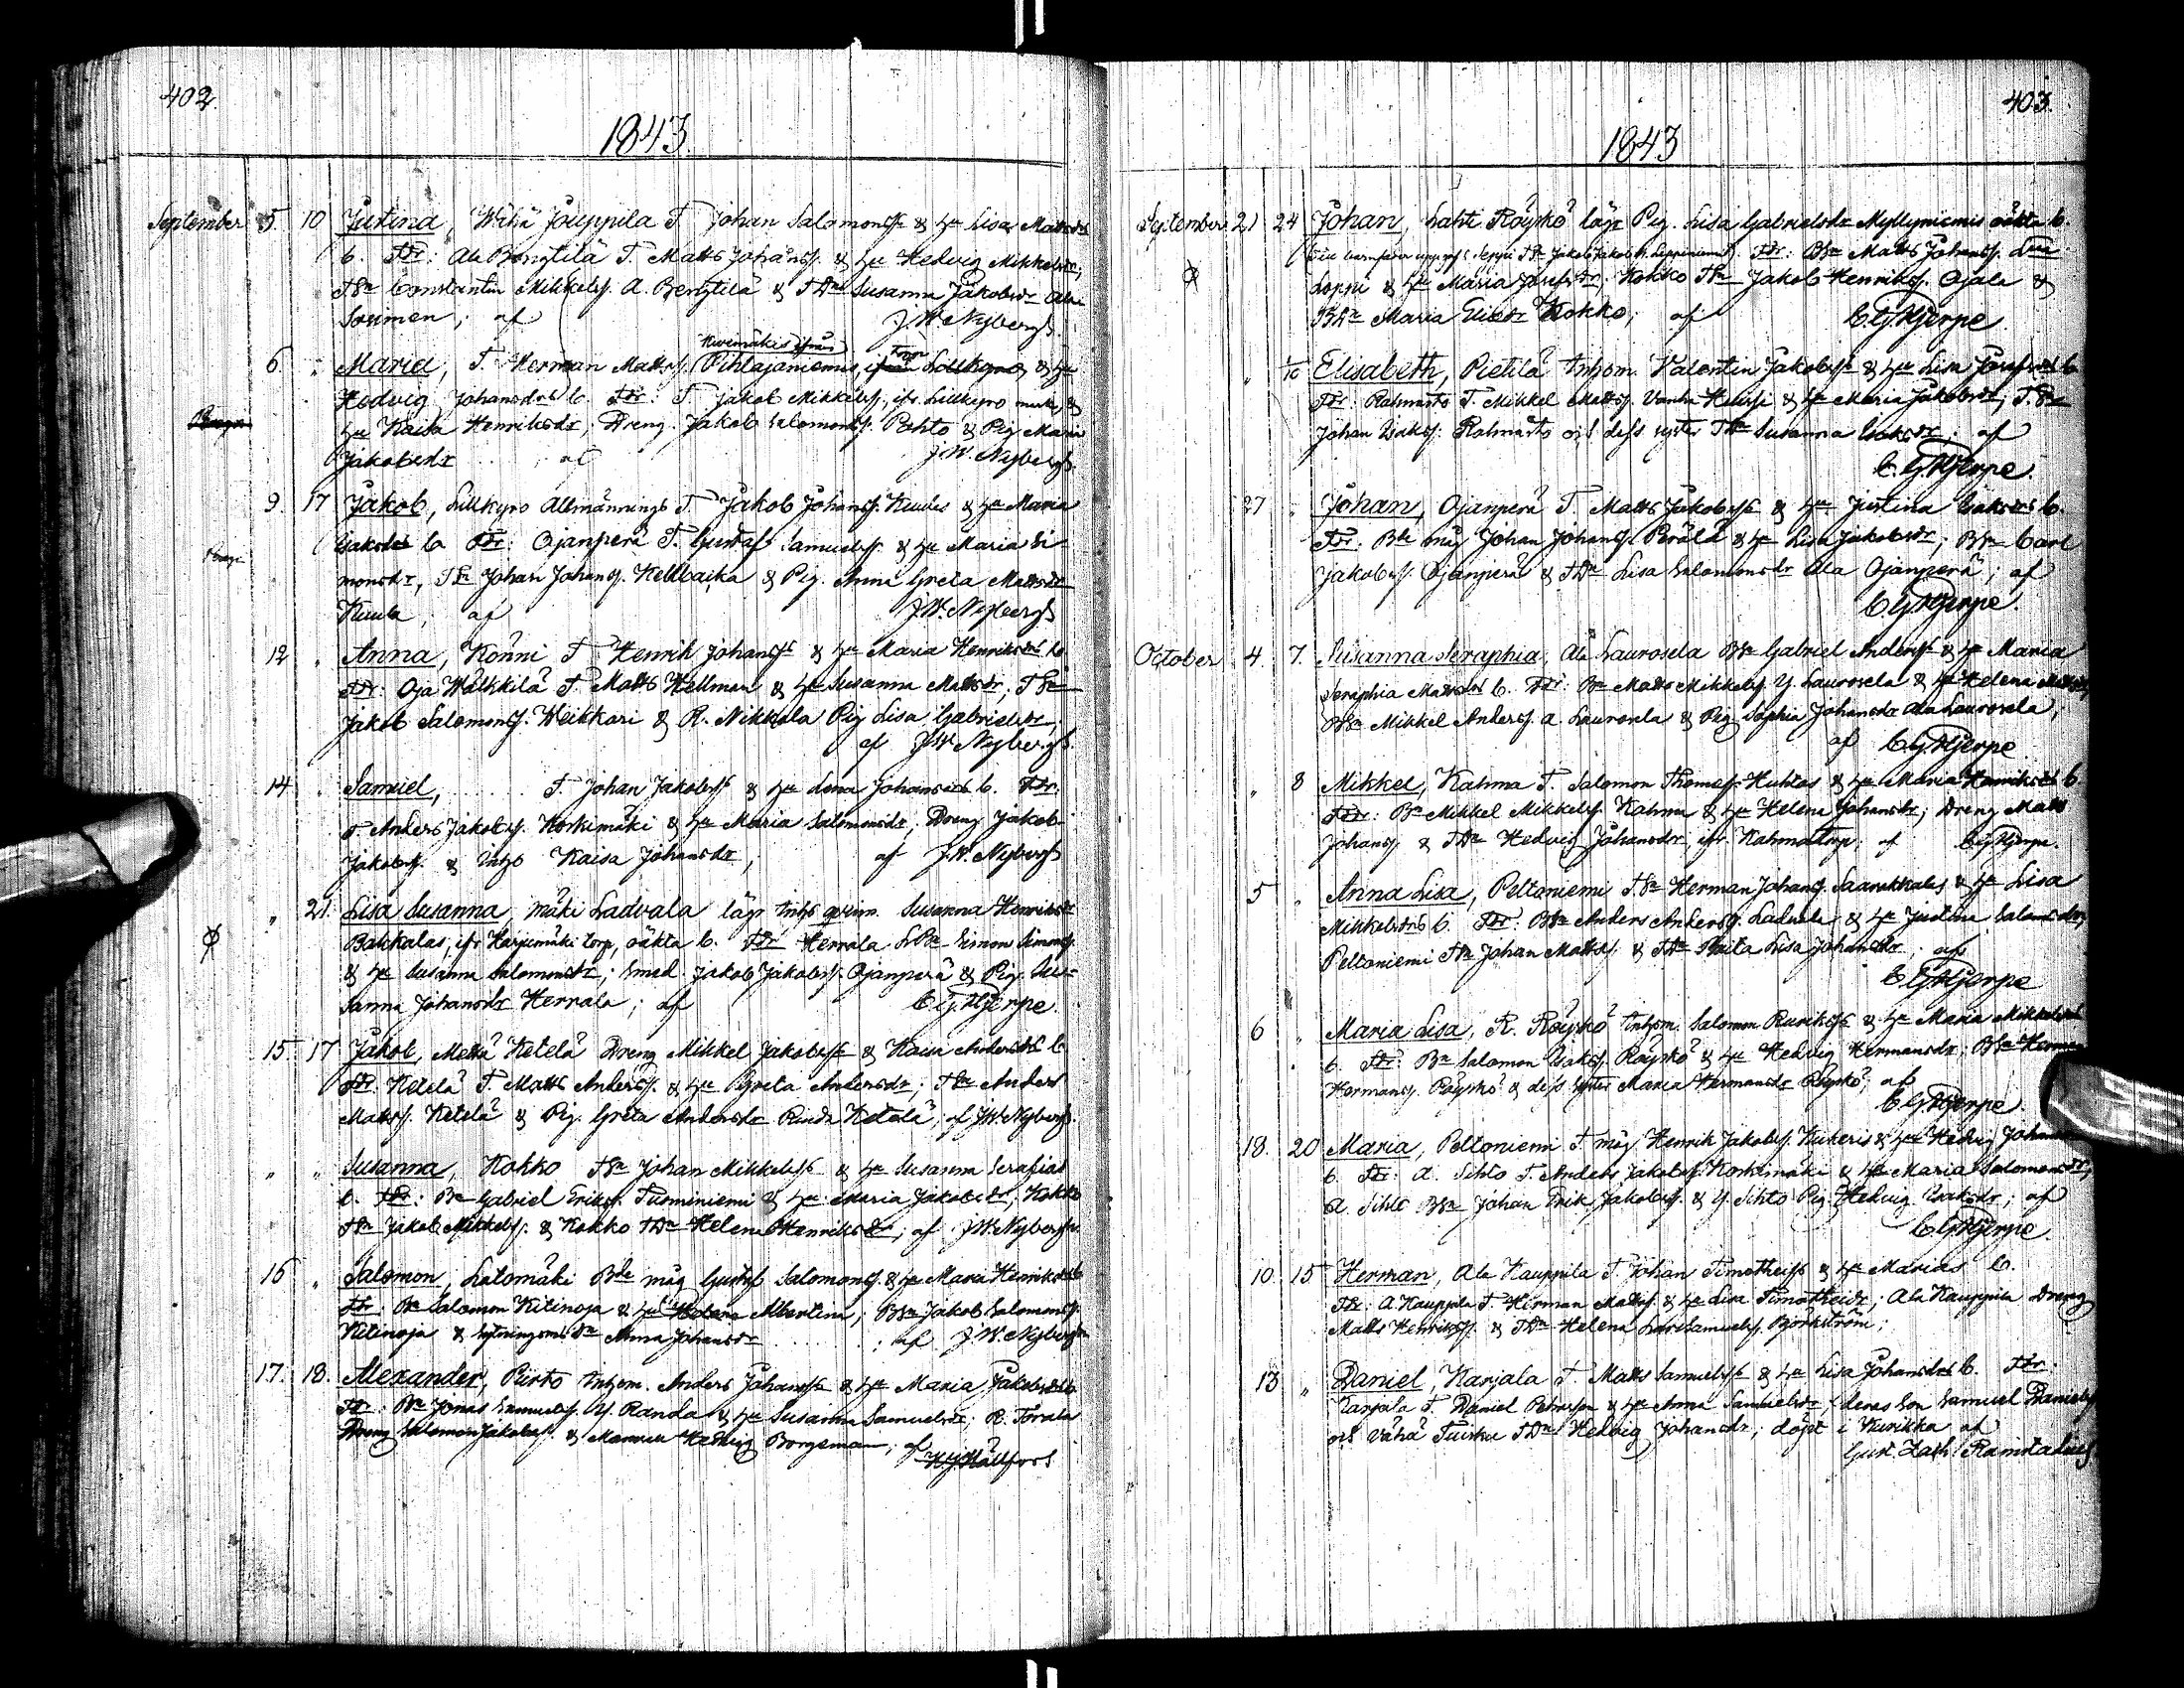 402.
1843.
September 5. 10 Justina, Wähä Jouppila T. Johan Salomonss & Hu Lisa Mattsdrs
b. Fdr: Ala Bengtilä T. Matts Johanss. & Hu Hedvig Mikkelsdr,
TSn Constantin Mikkelss. A. Bengtilä & TDr Susanna Jakobsdr Ala
Sorimen; af J.W. Nybergh
6. " Maria, T. Herman Mattss. Pihlajaniemis, Lillkyro & Hu
Hedvig Johansdrs b. Fdr: T. Jakob Mikkelss. ifr. Lillkyro &
Hu Kaisa Henriksdr; Dreng Jakob Salomonss. Pohto & Pig. Maria
Jakobsdr af J.W. Nybergh.
9. 17 Jakob, Lillkyro Allmännings T. Jakob Johanss. Kuules & Hu Maria
Isaksdrs b. Fdr: Ojanperä T. Gustaf Samuelss. & Hu Maria Si-
monsdr, TSn Johan Johanss. Kellbaika & Pig. Anna Greta Mattsdr
Kuula, af J.W. Nybergh
12 " Anna, Könni T. Henrik Johanss & Hu Maria Henriksdrs b.
Fdr: Oja Wälkkilä T. Matts Hellman & Hu Susanna Mattsdr, TSn
Jakob Salomonss. Weikkari & R. Nikkola Pig Lisa Gabrielsdr,
af J.W. Nybergh.
14. Samuel, T. Johan Jakobss & Hu Lena Johansdrs b. Fdr.
T. Anders Jakobss. Koskimäki & Hu Maria Salomonsdr, Dreng Jakob
Jakobss. & Inhs Kaisa Johansdr, af J.W. Nybergh
" 21. Lisa Susanna, mäki Ladvala lägr Inhs qvinn. Susanna Henriksdr
Bakkalas, ifr Harjumäki torp, oäkta b. Fdr Herrala Simon Simonss.
& Hu Susanna Salomonsdr; Smed. Jakob Jakobss. Ojanperä & Pig. Su-
sanna Johansdr Herrala; af C.G. Hjerpe.
15. 17 Jakob, Mettä Ketelä Dreng Mikkel Jakobss & Kaisa Andersdrs b.
Fdr. Ketelä T. Matts Anderss. & Hu Greta Andersdr; TSn Anders
Mattss. Ketelä & Pig. Greta Andersdr Ketelä, af J.W. Nybergh.
" " Susanna, Kokko TSn Johan Mikkelss & Hu Susanna Serafias
b. Fdr: Bn Gabriel Erikss. Tuominiemi & Hu Maria Jakobsdr, Kokko
TSn Jakob Mikkelss. & Kokko TDr Helena Henriksdr; af J.W. Nybergh.
16 " Salomon, Latomäki Bde måg Gustaf Salomonss. & Hu Maria Henriksdrs b
Fdr: Bn Salomon Kitinoja & Hu Albertina; BSn Jakob Salomonss.
Kitinoja & Anna Johansdr; af J.W. Nybergh
17. 18. Alexander, Pirto Inhsm. Anders Johanss & Hu Maria Jakobsdrs b
Fdr: Bn Jonas Samuelss. Y. Randa & Hu Susanna Samuelsdr; R. Torala
Dreng Salomon Jakobss. & Hedvig Borgeman; af
403.
1843
September 21 24 Johan, Lahti Röyskö lägr Pig. Lisa Gabrielsdr Myllyniemis oäkta b.
Fdr: BSn Matts Johanss.
Loppi & Hu Maria Josefsdr; Kokko TSn Jakob Henrikss. Ojala &
BDr Maria Kokko; af C.G. Hjerpe
" 1/10 Elisabeth, Pietilä Inhsm. Valentin Jakobss & Hu Lisa Josefsdrs b.
Fdr: Rahnasto T. Mikkel Mattss. & Hu Maria Jakobsdr, T.Sn
Johan Isakss. Rahnasto och dess syster TDr Susanna Isaksdr; af
C.G. Hjerpe.
27 " Johan, Ojanperä T. Matts Jakobss & Hu Justina Isaksdrs b.
Fdr. Bde måg Johan Johanss. Perälä & Hu Lisa Jakobsdr; BSn Carl
Jakobss. Ojanperä & TDr Lisa Salomonsdr Ala Ojanperä; af
C.G. Hjerpe.
October 4. 7. Susanna Seraphia, Ala Laurosela BSn Gabriel Anderss & Hu Maria
Seraphia Mattsdrs b. Fdr: Bn Matts Mikkelss. Y. Laurosela & Hu Helena
BSn Mikkel Anderss. A. Laurosela & Pig. Sophia Johansdr Ala Laurosela;
af C.G. Hjerpe
" 8 Mikkel, Kahma T. Salomon Thomass Huhtas & Hu Maria Henriksdrs b.
Fdr: Bn Mikkel Mikkelss. Kahma & Hu Helena Johansdr; Dreng Matts
Johanss & TDr Hedvig Johansdr, ifr. Kahma torp; af C.G. Hjerpe.
5 " Anna Lisa, Peltoniemi TSn Herman Johanss. Saarakkalas & Hu Lisa
Mikkelsdrs b. Fdr: BSn Anders Anderss. Ladvala & Hu Justina Salomonsdr,
Peltoniemi TSn Johan Mattss. & TDr Lisa Johansdr. af
C.G. Hjerpe
6 " Maria Lisa, R. Röyskö Inhsm. Salomon & Hu Maria Mikkelsdrs
b. Fdr: Bn Salomon Isakss. Röyskö & Hu Hedvig Hermansdr; BSn Herman
Hermanss. Röyskö & dess syster Maria Hermansdr Röyskö; af
C.G. Hjerpe.
18. 20 Maria, Peltoniemi T. måg Henrik Jakobss. Kukeris & Hu Hedvig
b. Fdr: A. Sihto T. Anders Jakobss. Koskimäki & Hu Maria Salomonsdr,
A. Sihto BSn Johan Erik Jakobss. & Y. Sihto Pig. Hedvig Isaksdr; af
C.G. Hjerpe.
10. 15 Herman, Ala Kauppila T. Johan Timotheiss & Hu Marias b.
Fdr: A. Kauppila T. Herman Mattss. & Hu Lisa Timotheidr; Ala Kauppila Dreng
Matts Henrikss. & TDr Helena Björkström;
13 " Daniel, Karjala T. Matts Samuelss & Hu Lisa Johansdrs b. Fdr.
Karjala T. Daniel Petersson & Hu Anna Samuelsdr, deras Son Samuel Danielss
och Vähä Tuisku TDr Hedvig Johansdr; döpt i Kurikka af
Gust. Zach. Ramstadius